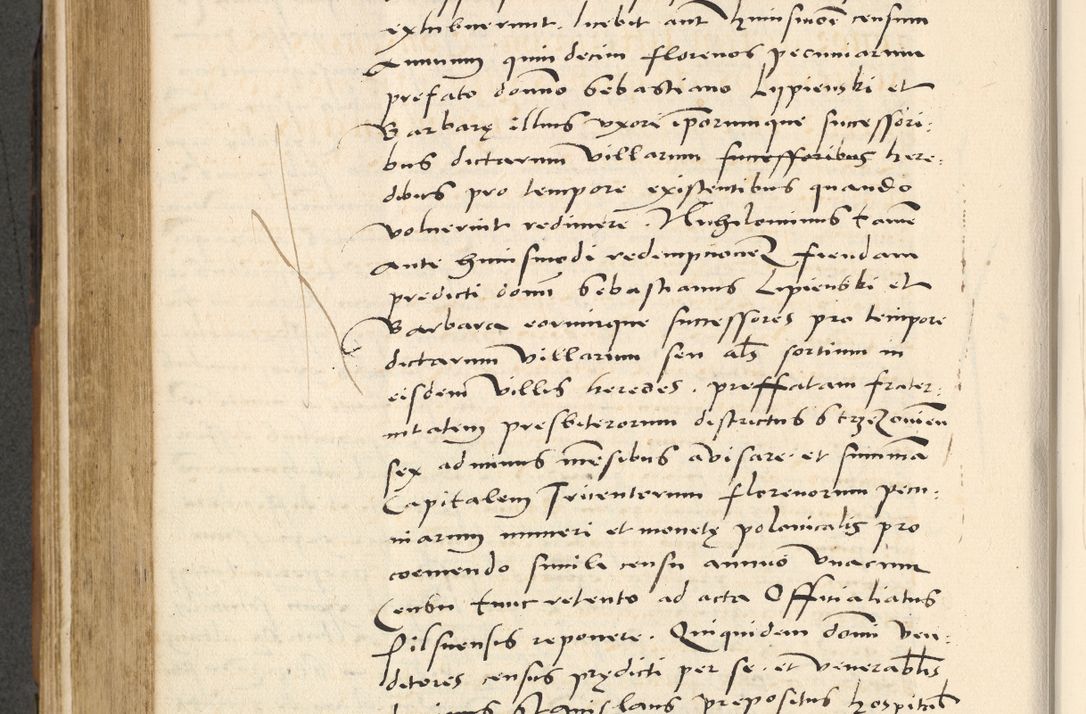 exhibuerunt. licebit aut huiusmodi censum
Annuum quindecim florenos pecuniarum
prefato domino Sebastiano Lypienski et
Barbarę illius vxori ipsorumque successori:
bus dictarum villarum successoribus here:
dibus pro tempore existentibus quando
voluerint redimere. Nihilominus tame
ante huiusmodi redemptionem fiendam
predicti domi Sebastianus Lipienski et
Barbara eorumque successores pro tempore
dictarum villarum seu als sortium in
eisdem villis heredes. preffatam frater:
nitatem presbiterorum districtus Strzezouien
sex ad minus mēsibus avisare. et summā
Capitalem Tricentorum florenorum pecu:
niarum numeri et monetę polonicalis pro
coemendo simile censu annuo vnacum
Censu tunc retento ad acta Officialiatus
Pilsnensis reponere. Quiquidem domi ven:
ditores census prędicti per se. et venerabilis
Stanislaus prepositus hospital